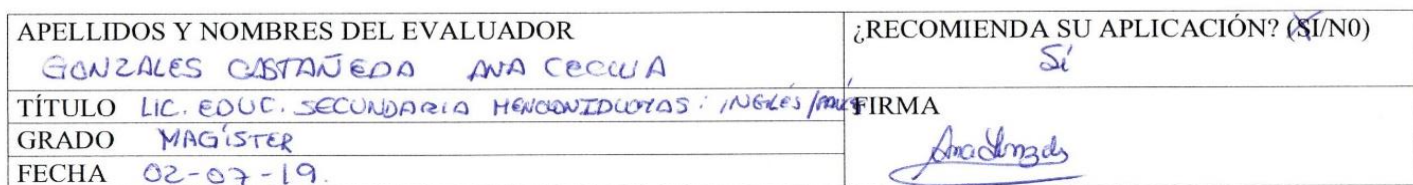 APELLIDOS Y NOMBRES DEL EVALUADOR
GONZALES CASTAÑEDA ANA CECILIA
¿RECOMIENDA SU APLICACIÓN? (SI/N0)
Sí
TÍTULO LIC. EDUC. SECUNDARIA MENCIÓN IDIOMAS: INGLÉS/
FIRMA
GRADO MAGÍSTER
FECHA 02-07-19.